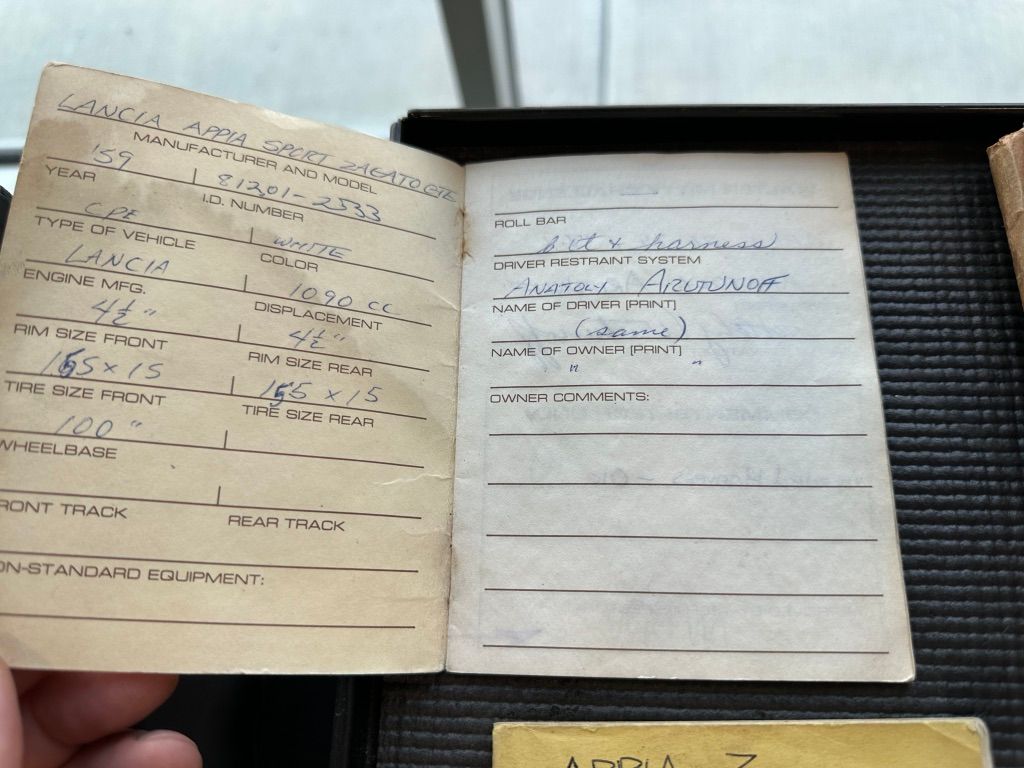 LANCIA APPIA SPORT ZAGATO CTE
MANUFACTURER AND MODEL
'59 81201-2533
YEAR I.D. NUMBER
CPE WHITE
TYPE OF VEHICLE COLOR
LANCIA 1090 CC
ENGINE MFG. DISPLACEMENT
4½" 4½"
RIM SIZE FRONT RIM SIZE REAR
155 x 15 155 x 15
TIRE SIZE FRONT TIRE SIZE REAR
100"
WHEELBASE
RONT TRACK REAR TRACK
ON-STANDARD EQUIPMENT:
ROLL BAR
belt & harness
DRIVER RESTRAINT SYSTEM
ANATOLY ARUTUNOFF
NAME OF DRIVER [PRINT]
(same)
NAME OF OWNER [PRINT]
" "
OWNER COMMENTS:
APPIA Z